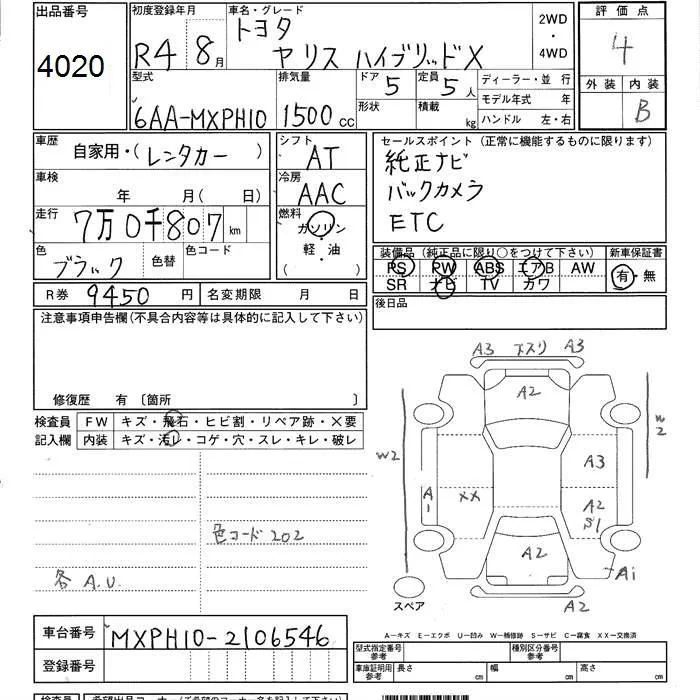 出品番号 初度登録年月 車名・グレード 評価点
4020 R4 8月 トヨタ ヤリス ハイブリッドX 2WD・4WD 4
型式 排気量 ドア 定員 ディーラー・並 行 外装 内装
6AA-MXPH10 1500cc 5 5人 モデル年式 年 B
形状 積載 kg ハンドル 左・右
車歴 自家用・(レンタカー)
シフト AT
セールスポイント(正常に機能するものに限ります)
純正ナビ
バックカメラ
ETC
車検 年 月(日)
冷房 AAC
走行 7万0千807km
燃料 ガソリン・軽・油・( )
色 ブラック 色替 色コード
装備品(純正品に限り○をつけて下さい) 新車保証書
PS PW ABS エアB AW 有・無
SR ナビ TV カワ
R券 9450円 名変期限 月 日
後日品
注意事項申告欄(不具合内容等は具体的に記入して下さい)
修復歴 有〔箇所 〕
検査員 FW キズ・飛石・ヒビ割・リペア跡・×要
記入欄 内装 キズ・汚レ・コゲ・穴・スレ・キレ・破レ
色コード 202
各 A.U.
A3 下スリ A3
A2
W2
W2
A3
A1
XX
A2
S1
A2
A1
スペア
A2
車台番号 MXPH10-2106546
登録番号
A―キズ E―エクボ U―凹み W―補修跡 S―サビ C―腐食 XX―交換済
型式指定番号 参考 種別区分番号 参考
車庫証明用 参考 長さ cm 幅 cm 高さ cm
検査員 希望出品コーナー(ご希望のコーナー名を記入して下さい)